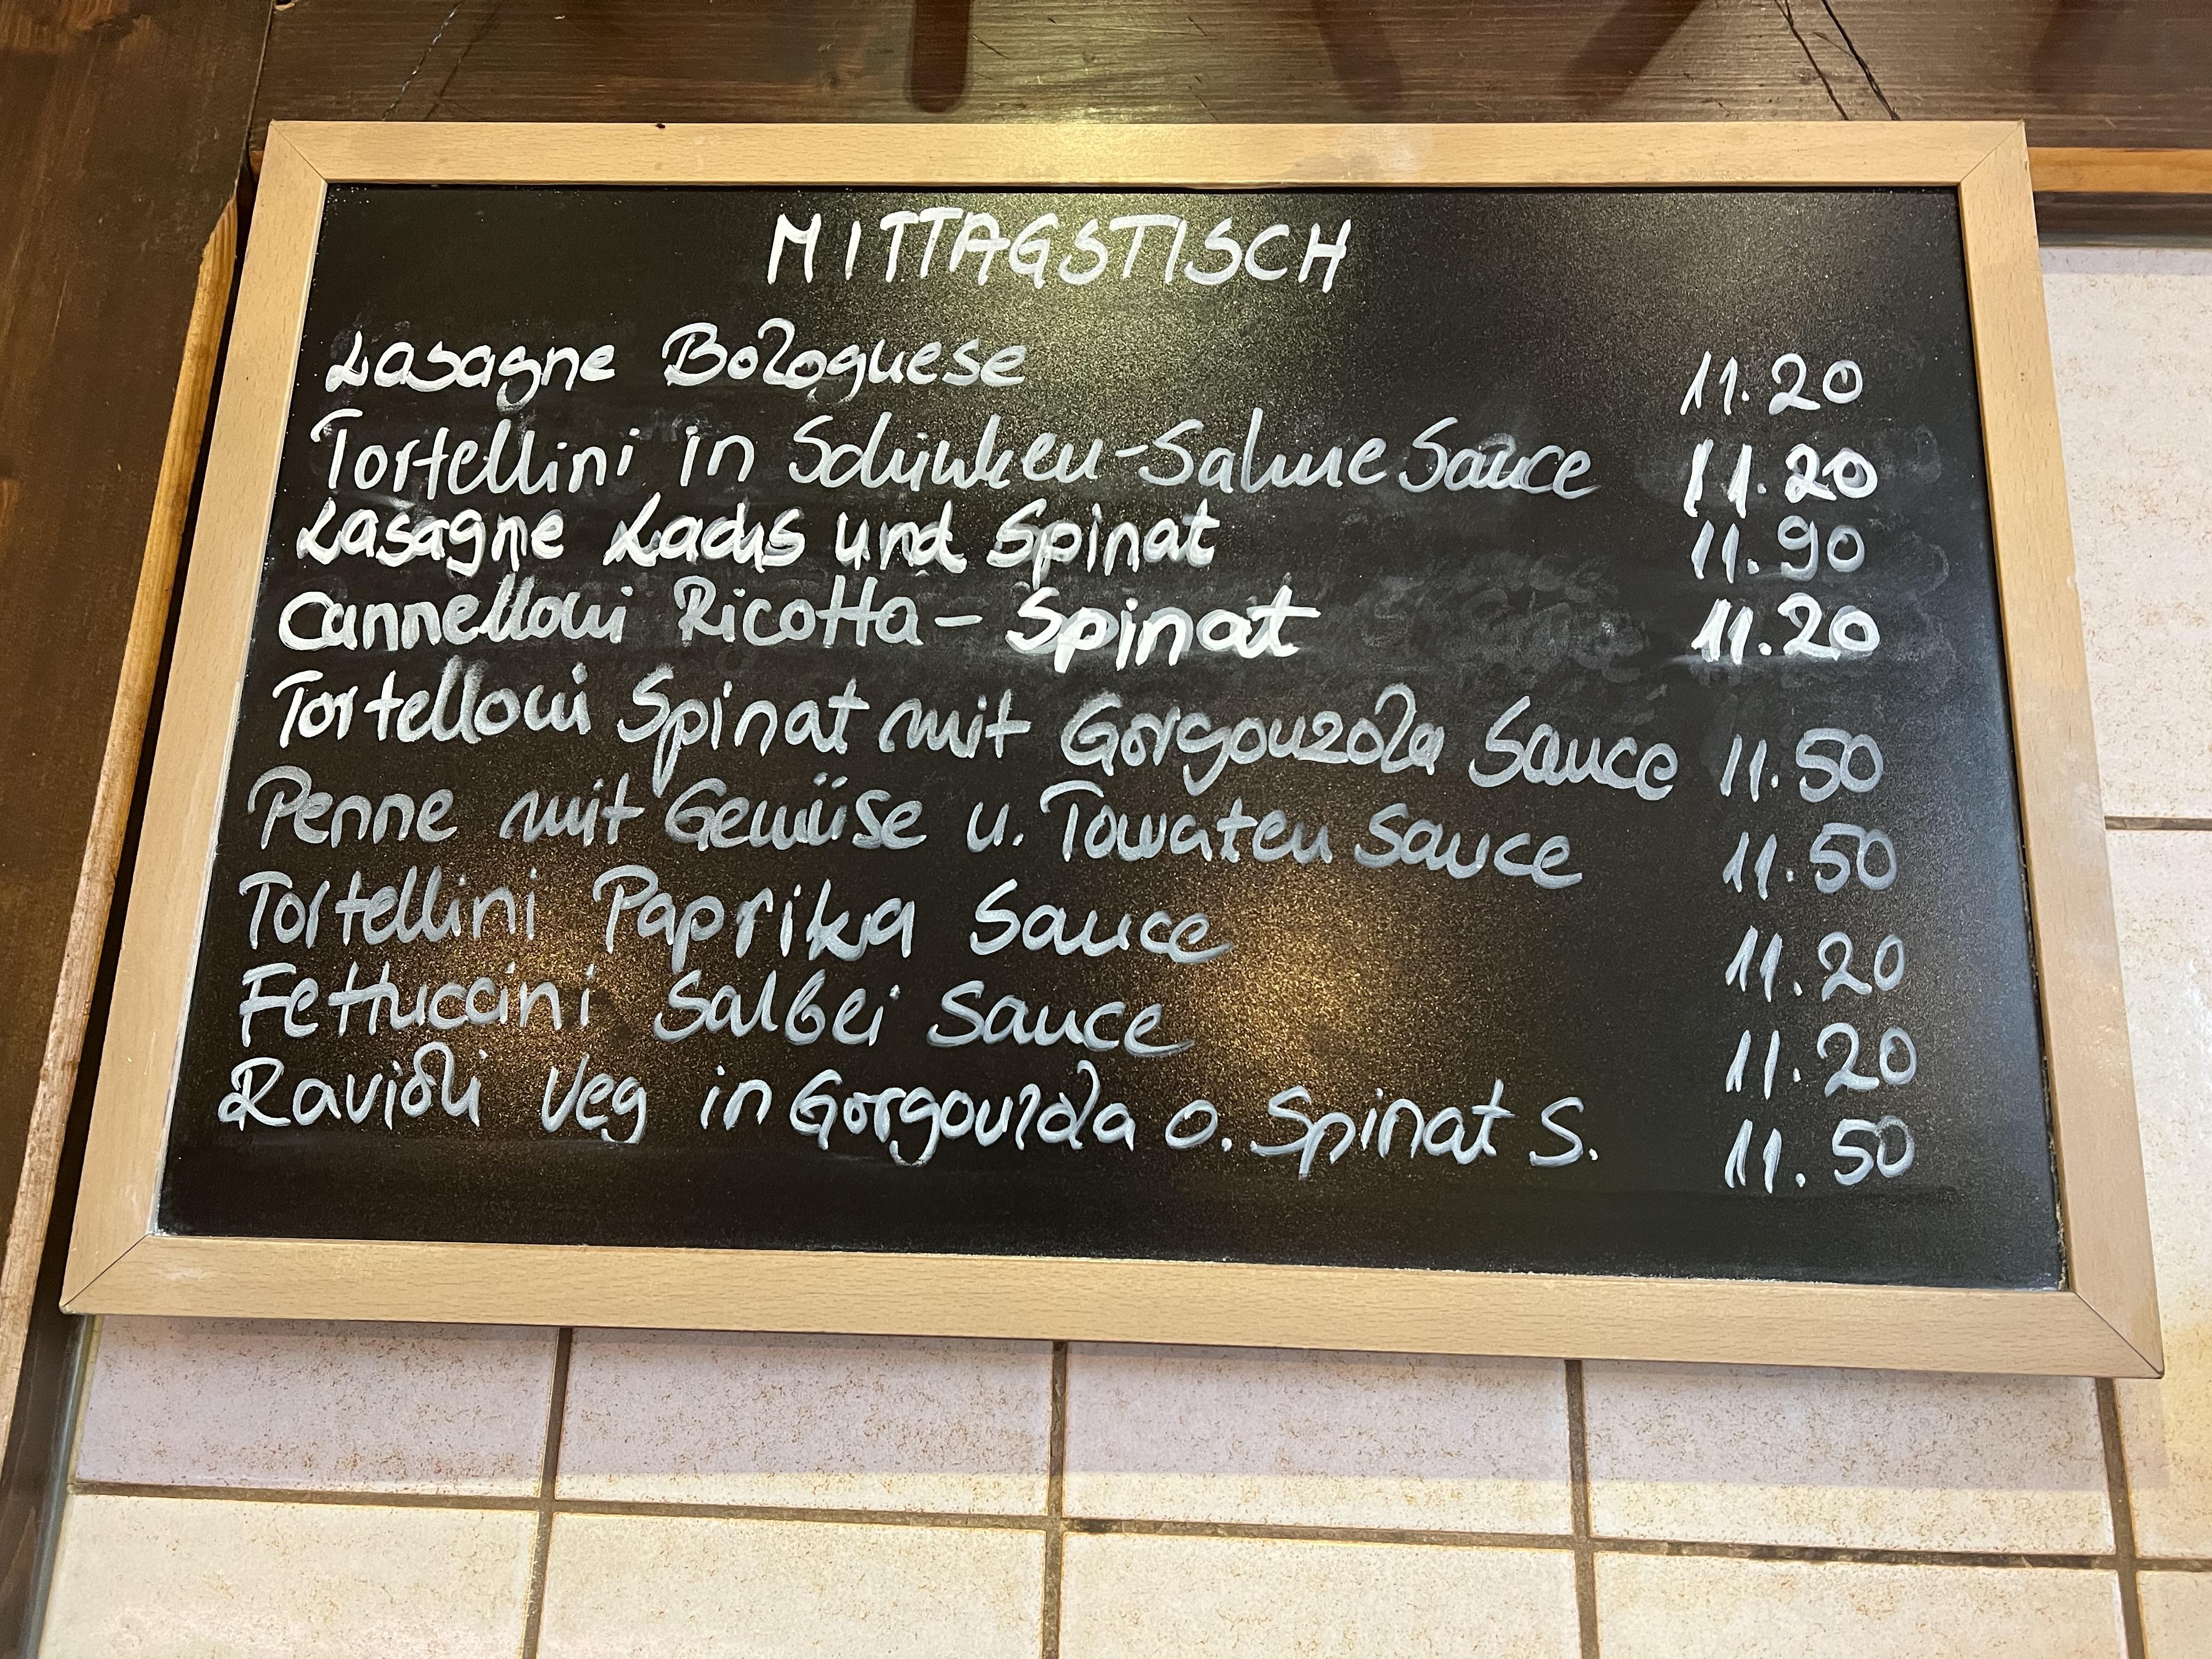 MITTAGSTISCH
Lasagne Bolognese 11.20
Tortellini in Schinken-Sahne Sauce 11.20
Lasagne Lachs und Spinat 11.90
Cannelloni Ricotta - Spinat 11.20
Tortelloni Spinat mit Gorgonzola Sauce 11.50
Penne mit Gemüse u. Tomaten Sauce 11.50
Tortellini Paprika Sauce 11.20
Fettuccini Salbei Sauce 11.20
Ravioli Veg in Gorgonzola o. Spinat S. 11.50